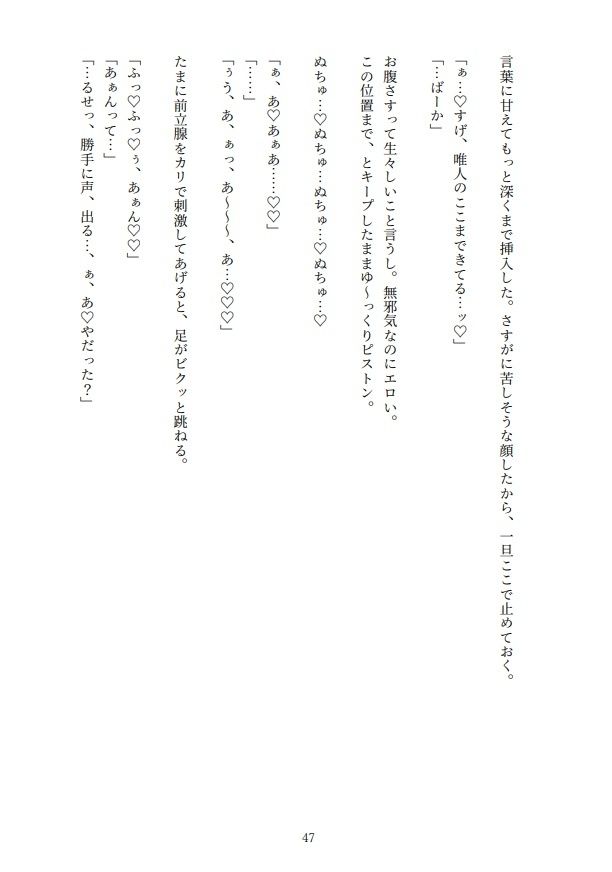 言葉に甘えてもっと深くまで挿入した。さすがに苦しそうな顔したから、一旦ここで止めておく。
「ぁ…♡すげ、唯人のここまできてる…ッ♡」
「…ばーか」
お腹さすって生々しいこと言うし。無邪気なのにエロい。
この位置まで、とキープしたままゆ〜っくりピストン。
ぬちゅ…♡ぬちゅ…ぬちゅ…♡ぬちゅ…♡
「ぁ、あ♡あぁあ……♡♡」
「……」
「ぅう、あ、ぁっ、あ〜〜〜、あ…♡♡♡」
たまに前立腺をカリで刺激してあげると、足がビクッと跳ねる。
「ふっ♡ふっ♡ぅ、あぁん♡♡」
「あぁんって…」
「…るせっ、勝手に声、出る…、ぁ、あ♡やだった？」
47